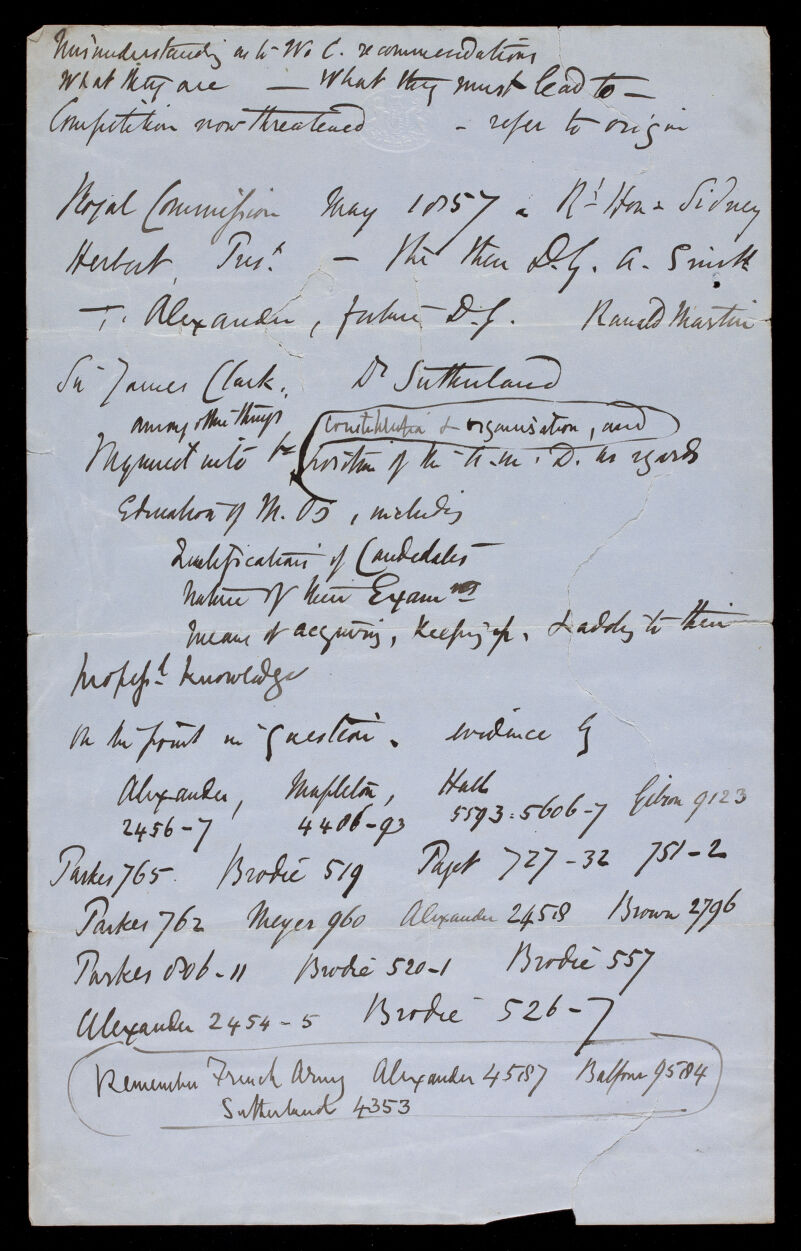 Misunderstanding as to W. C. recommendations
What they are — What they must lead to —
Competition now threatened - refer to origin
Royal Commission May 1857. Rt Hon. Sidney
Herbert, Prest. — The then D.G. A. Smith
T. Alexander, future D.G. Ranald Martin
Sir James Clark. Dr Sutherland
among other things constitution & organisation, and
Inquired into the position of the A.M.D. as regards
Education of M.Os, including
Qualifications of Candidates
Nature of their Examns
means of acquiring, keeping up, & adding to their
professl knowledge
On the point in question. evidence of
Alexander, Mapleton, Hall Gibson 9123
2456-7 4486-93 5593:5606-7
Parkes 765. Brodie 519 Paget 727-32 751-2
Parkes 762 Meyer 960 Alexander 2458 Brown 2796
Parkes 806-11 Brodie 520-1 Brodie 557
Alexander 2454-5 Brodie 526-7
Remember French Army Alexander 4587 Balfour 9584
Sutherland 4353